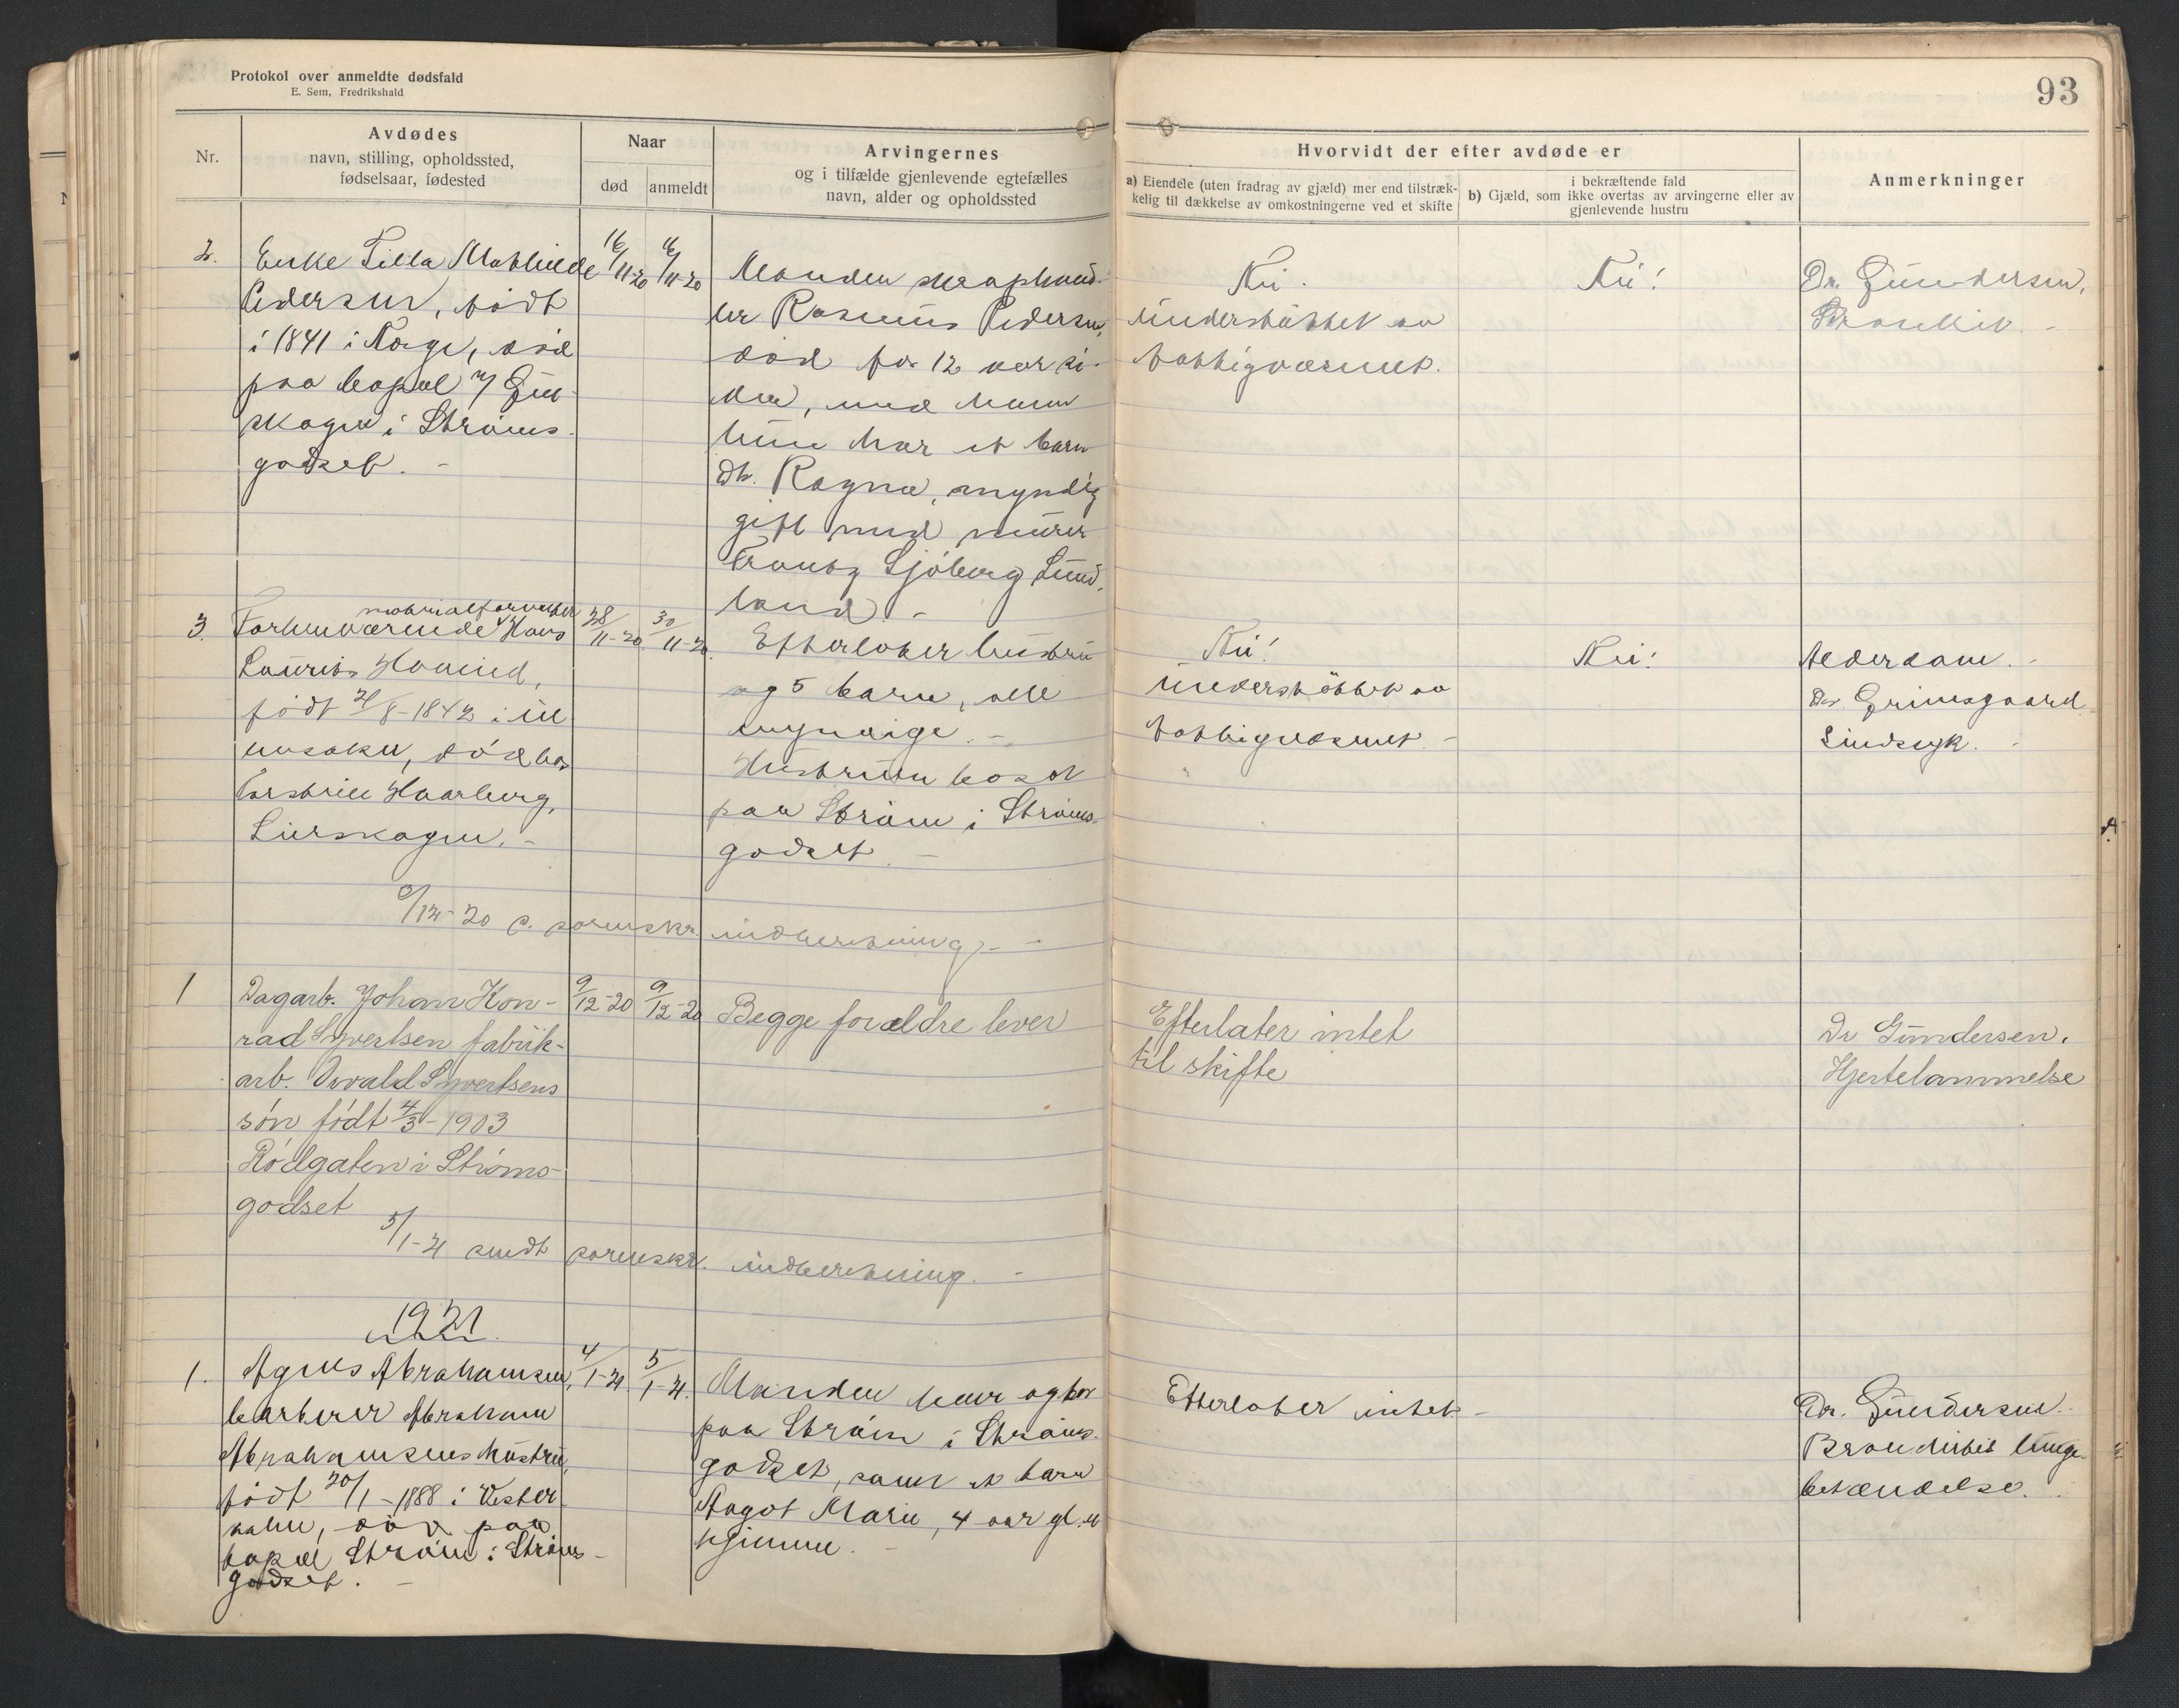 Protokol over anmeldte dødsfald
E. Sem, Fredrikshald
93
Nr.
Avdødes
navn, stilling, opholdssted,
fødselsaar, fødested
Naar
død
anmeldt
Arvingernes
og i tilfælde gjenlevende egtefælles
navn, alder og opholdssted
Hvorvidt der efter avdøde er
a) Eiendele (uten fradrag av gjæld) mer end tilstræk-
kelig til dækkelse av omkostningerne ved et skifte
i bekræftende fald
b) Gjæld, som ikke overtas av arvingerne eller av
gjenlevende hustru
Anmerkninger
2.
Enke Tilla Mathilde
Pedersen, født
i 1841 i Norge, død
paa bopæl
skogen i Strøms-
godset. -
16/11-20
16/11-20
Manden skraphand-
ler Rasmus Pedersen,
død for 12 aar si-
den, med ham
hun har et barn
Dtr. Ragna, myndig
gift med murer
Frantz Sjöberg Sund-
land. -
Nei.
understøttet av
fattigvæsenet.
Nei!
Dr. Gundersen,
3.
Forhenværende materialforvalter Hans
Laurits
født 21/8-1842 i Ul-
lensaker, død hos
Haarberg,
Lierskogen. -
28/11-20.
30/11-20.
Efterlater hustru
og 5 barn, alle
myndige. -
Hustruen bosat
paa Strøm i Strøms-
godset. -
Nei!
understøttet av
fattigvæsenet. -
Nei!
Alderdom. -
Dr. Grimsgaard
Sindssyk. -
6/12-20 s. sorenskr. indberetning. -
1
Dagarb. Johan Kon-
rad Syvertsen fabrik-
arb. Osvald Syvertsens
søn født 4/3-1903
Rødgaten i Strøms-
godset
9/12-20
9/12-20
Begge forældre lever
Efterlater intet
til skifte
Dr Gundersen.
Hjertelammelse
5/1-21 sendt sorenskr. indberetning. -
1921.
1.
Agnes Abrahamsen,
barberer Abraham
Abrahamsens hustru,
født 20/1-1888 i Vester
aalen, død paa
bopæl Strøm i Strøms-
godset. -
4/1-21
5/1-21.
Manden lever og bor
paa Strøm i Strøms-
godset, samt et barn
Aagot Marie, 4 aar gl.
hjemme. -
Efterlater intet -
Dr. Gundersen. -
Bronchitis lunge-
betændelse. -